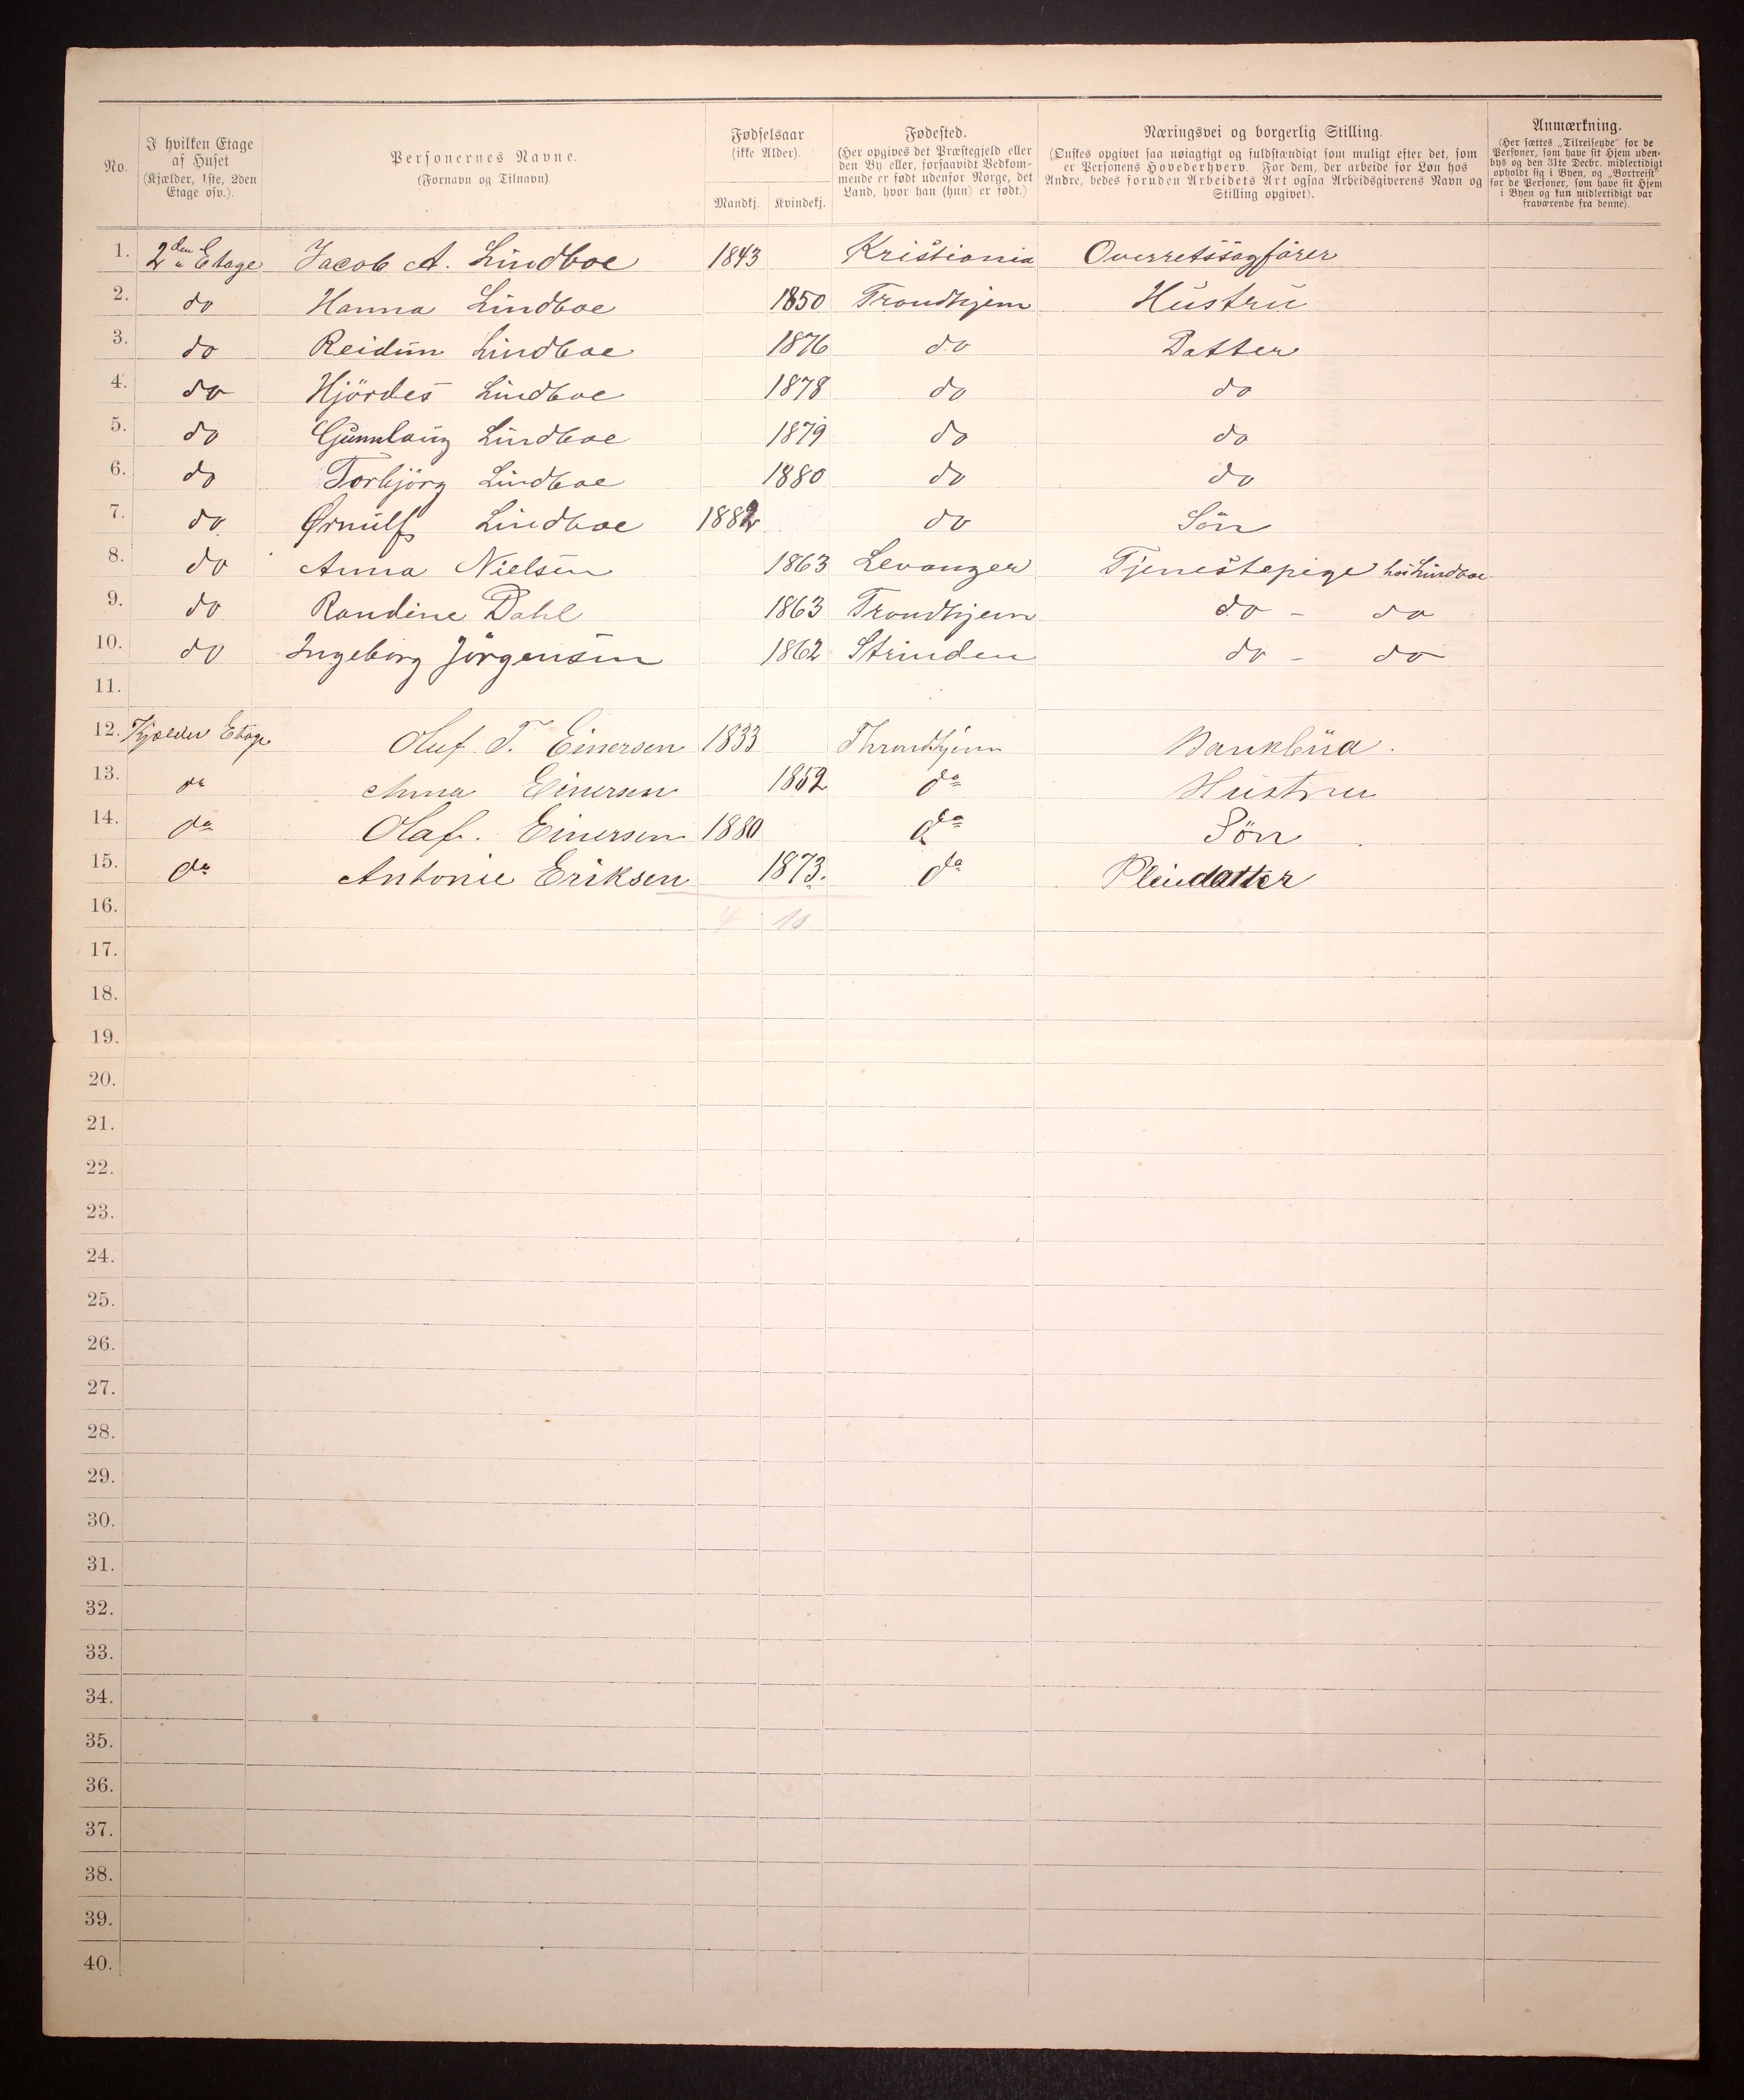 No.
I hvilken Etage
af Huset
(Kjælder, 1ste, 2den
Etage osv.).
Personernes Navne.
(Fornavn og Tilnavn).
Fødselsaar
(ikke Alder).
Mandkj. Kvindekj.
Fødested.
(Her opgives det Præstegjeld eller
den By eller, forsaavidt Vedkom-
mende er født udenfor Norge, det
Land, hvor han (hun) er født.)
Næringsvei og borgerlig Stilling.
(Ønskes opgivet saa nøiagtigt og fuldstændigt som muligt efter det, som
er Personens Hovederhverv. For dem, der arbeide for Løn hos
Andre, bedes foruden Arbeidets Art ogsaa Arbeidsgiverens Navn og
Stilling opgivet).
Anmærkning.
(Her sættes „Tilreisende" for de
Personer, som have sit Hjem uden-
bys og den 31te Decbr. midlertidigt
opholdt sig i Byen, og „Bortreist"
for de Personer, som have sit Hjem
i Byen og kun midlertidigt var
fraværende fra denne).
1. 2den Etage Jacob A. Lindboe 1843 Kristiania Overretssagförer
2. do Hanna Lindboe 1850 Trondhjem Hustru
3. do Reidun Lindboe 1876 do Datter
4. do Hjördes Lindboe 1878 do do
5. do Gunnlaug Lindboe 1879 do do
6. do Torbjörg Lindboe 1880 do do
7. do Ørnulf Lindboe 1882 do Sön
8. do Anna Nielsen 1863 Levanger Tjenestepige hos Lindboe
9. do Randine Dahl 1863 Trondhjem do - do
10. do Ingeborg Jörgensen 1862 Strinden do - do
11.
12. Kjælder Etage Oluf T. Einersen 1833 Throndhjem Bankbud.
13. do Anna Einersen 1852 do Hustru
14. do Olaf. Einersen 1880 do Sön
15. do Antonie Eriksen 1873. do Pleiedatter
16. 4 10
17.
18.
19.
20.
21.
22.
23.
24.
25.
26.
27.
28.
29.
30.
31.
32.
33.
34.
35.
36.
37.
38.
39.
40.